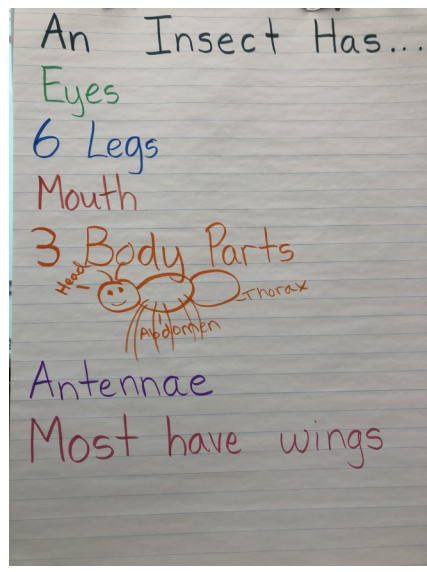 An Insect Has...
Eyes
6 Legs
Mouth
3 Body Parts
Head
Thorax
Abdomen
Antennae
Most have wings